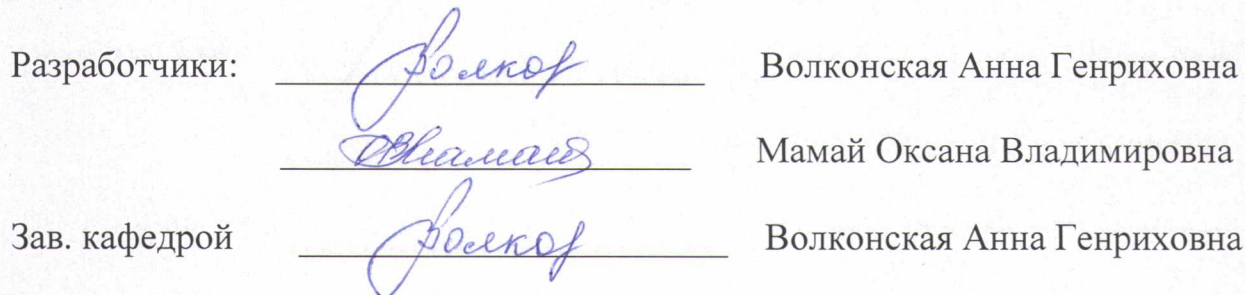 Разработчики: Волконская Анна Генриховна
Мамай Оксана Владимировна
Зав. кафедрой Волконская Анна Генриховна